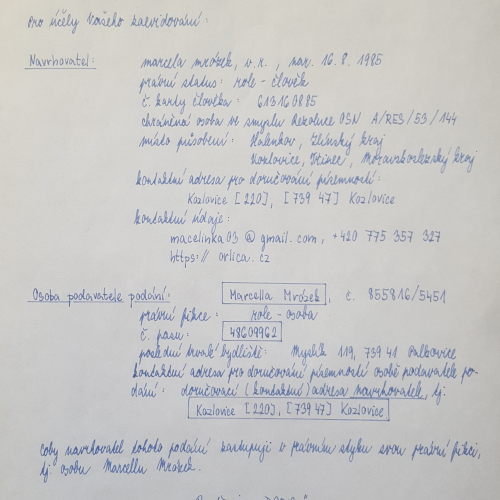 Pro účely Vašeho zaevidování:
Navrhovatel: marcela mrózek, v.r., nar. 16.8. 1985
právní status: role - člověk
č. karty člověka: 613160885
chráněná osoba ve smyslu Rezoluce OSN A/RES/53/144
místo působení: Halenkov, Zlínský kraj
Kozlovice, Třinec, Moravskoslezský kraj
kontaktní adresa pro doručování písemností:
Kozlovice [220], [739 47] Kozlovice
kontaktní údaje:
macelinka03@gmail.com, +420 775 357 327
https:// orlica.cz
Osoba podavatele podání: Marcella Mrózek, č. 855816/5451
právní fikce: role - osoba
č. pasu: 48609962
poslední trvalé bydliště: Myslík 119, 739 41 Palkovice
kontaktní adresa pro doručování písemností osobě podavatele po-
dání: doručovací (kontaktní) adresa navrhovatele, tj.
Kozlovice [220], [739 47] Kozlovice
Coby navrhovatel tohoto podání zastupuji v právním styku svou právní fikci,
tj. osobu Marcellu Mrózek.